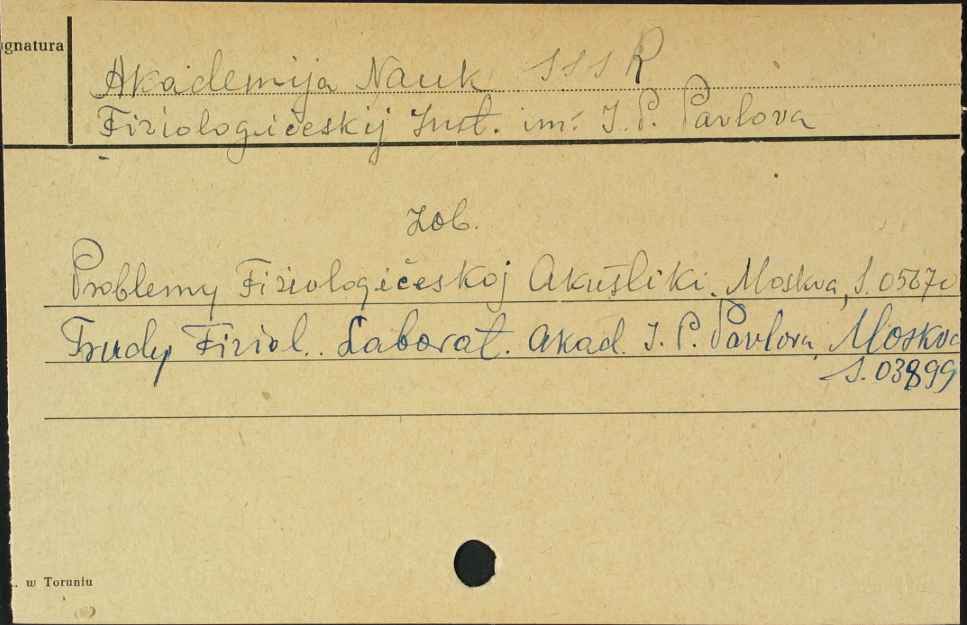 ignatura
Akademija Nauk SSSR
Fiziologičeskij Inst. im. I. P. Pavlova
Zob.
Problemy Fiziologičeskoj Akustiki. Moskva, S. 0567
Trudy Fiziol. Laborat. Akad. I. P. Pavlova, Moskva
S. 03899
. w Toruniu